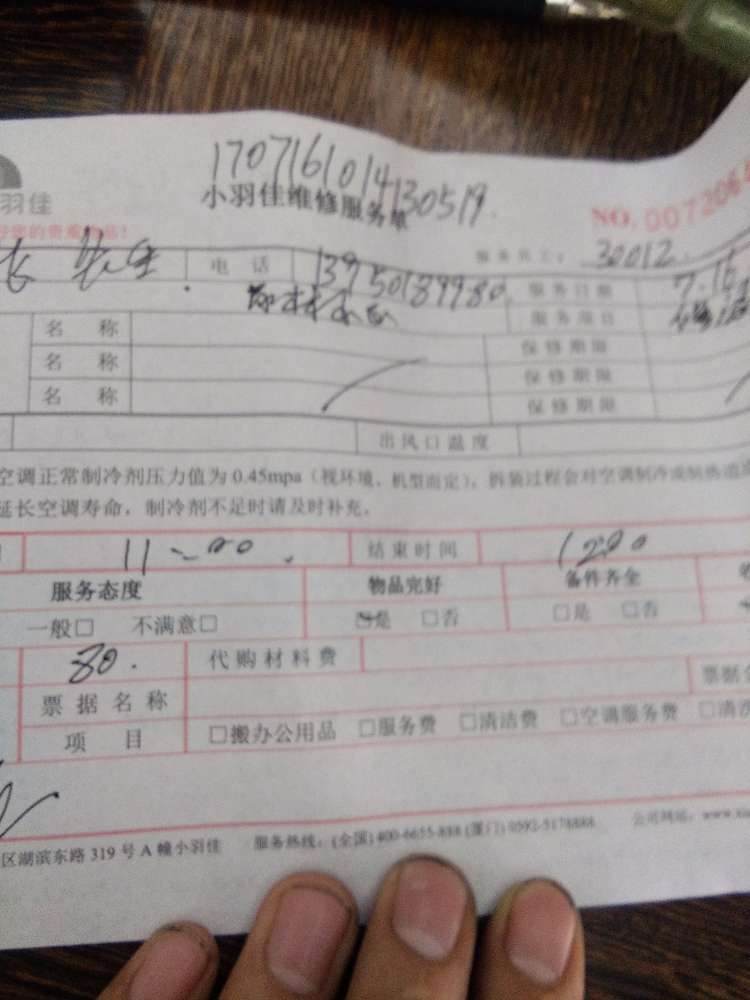 1707161014130519
羽佳
小羽佳维修服务单
NO. 007206
先生 电话 13950189980 服务员工: 30012
服务日期 7.16
服务项目
名称 保修期限
名称 保修期限
名称 保修期限
出风口温度
空调正常制冷剂压力值为0.45mpa(视环境、机型而定),拆装过程会对空调制冷或制热造
延长空调寿命,制冷剂不足时请及时补充。
11~00. 结束时间 1200
服务态度 物品完好 备件齐全
一般□ 不满意□ ☑是 □否 □是 □否
80. 代购材料费
票据名称 票据
项目 □搬办公用品 □服务费 □清洁费 □空调服务费 □清洗
区湖滨东路319号A幢小羽佳 服务热线:(全国)400-6655-888 (厦门)0592-5178888 公司网站: